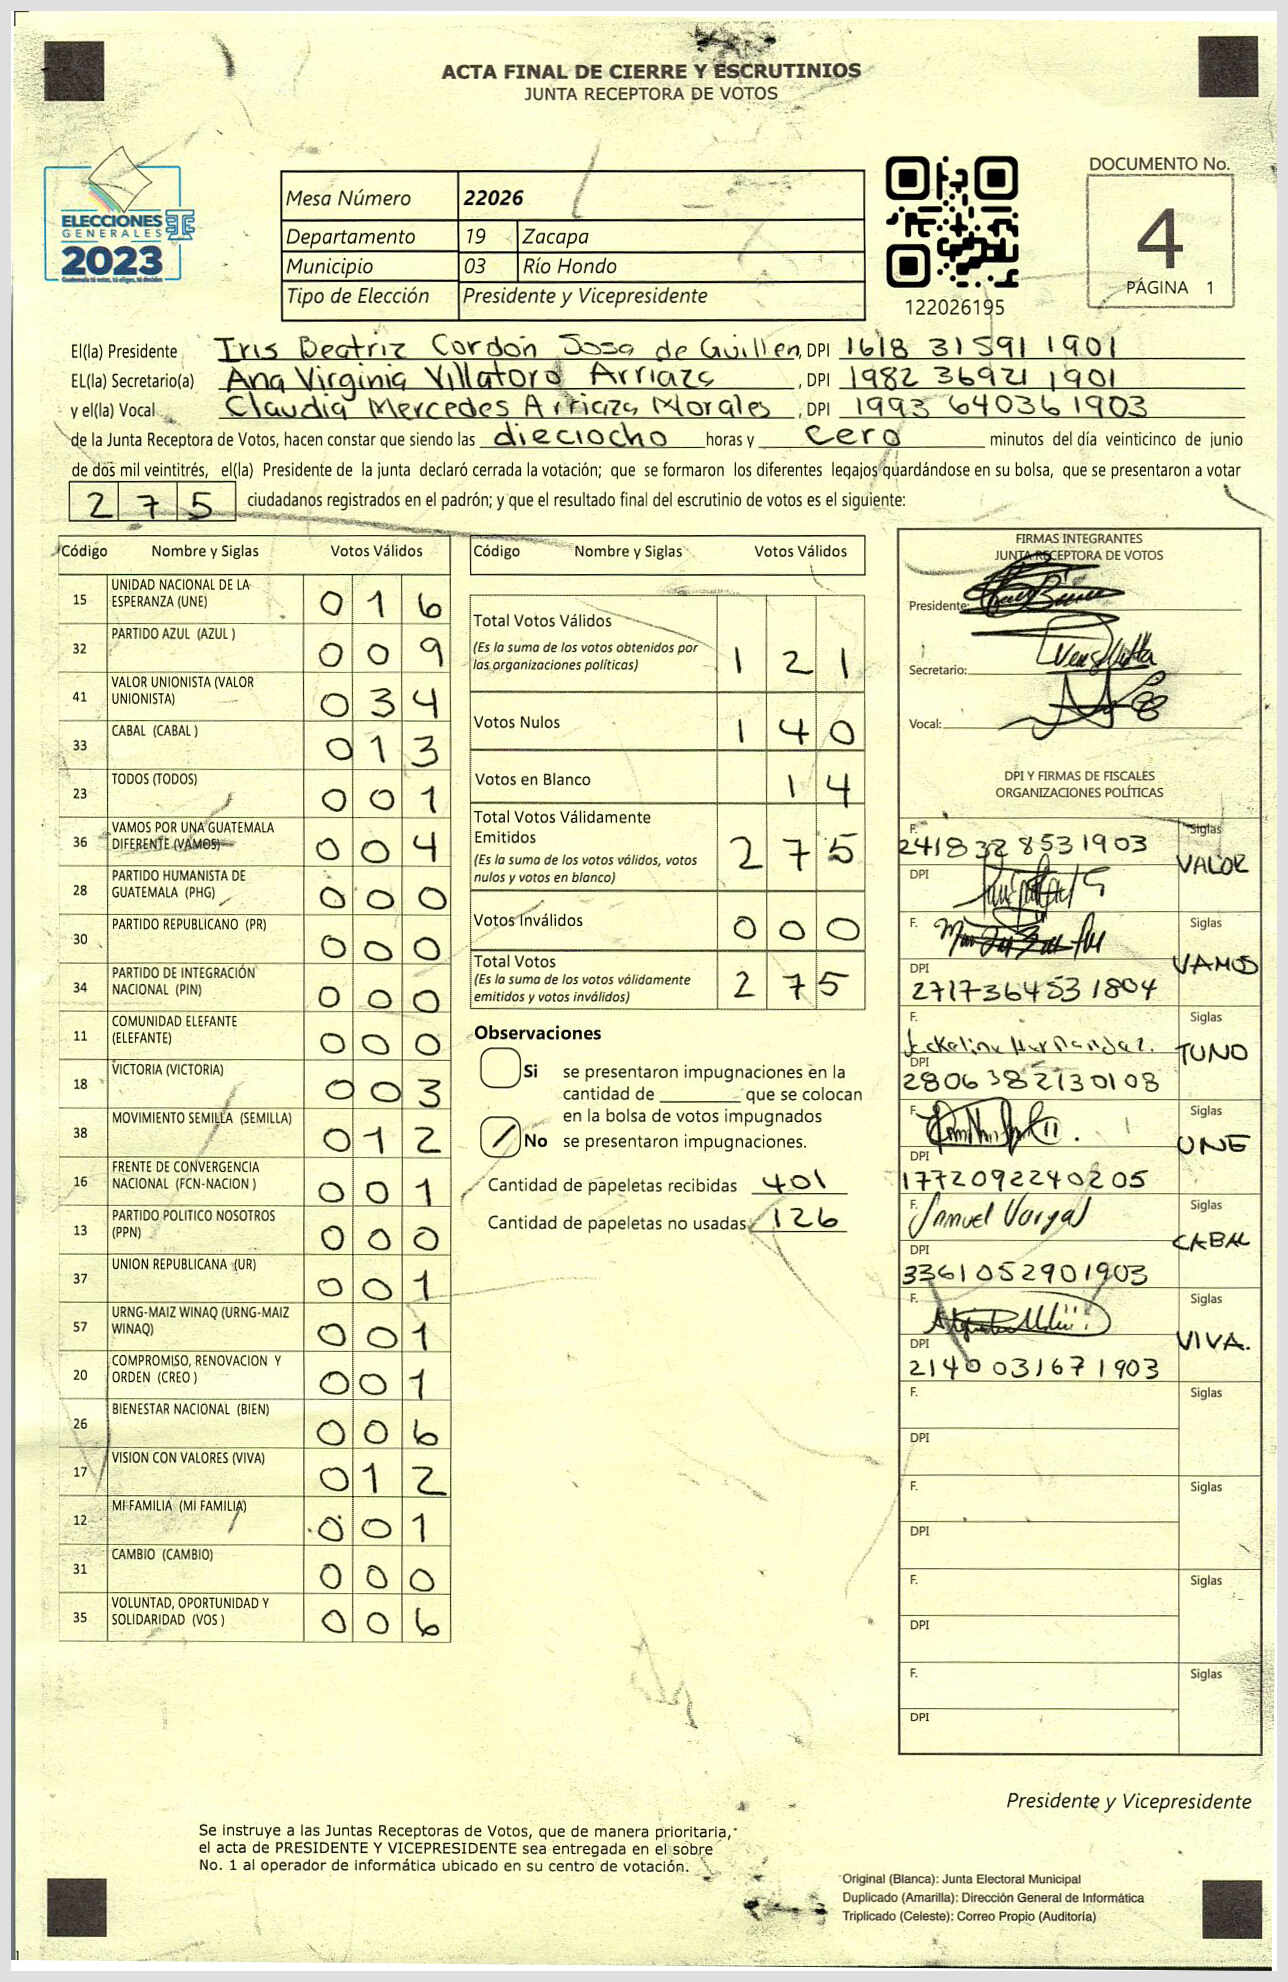 ACTA FINAL DE CIERRE Y ESCRUTINIOS
JUNTA RECEPTORA DE VOTOS
ELECCIONES
GENERALES
2023
Mesa Número 22026
Departamento 19 Zacapa
Municipio 03 Río Hondo
Tipo de Elección Presidente y Vicepresidente
122026195
DOCUMENTO No.
4
PÁGINA 1
El(la) Presidente Iris Beatriz Cordón Sosa de Guillen, DPI 1618 31591 1901
EL(la) Secretario(a) Ana Virginia Villatoro Arriaza, DPI 1982 36921 1901
y el(la) Vocal Claudia Mercedes Arriaza Morales, DPI 1993 64036 1903
de la Junta Receptora de Votos, hacen constar que siendo las dieciocho horas y cero minutos del día veinticinco de junio
de dos mil veintitrés, el(la) Presidente de la junta declaró cerrada la votación; que se formaron los diferentes legajos guardándose en su bolsa, que se presentaron a votar
275 ciudadanos registrados en el padrón; y que el resultado final del escrutinio de votos es el siguiente:
Código Nombre y Siglas Votos Válidos
15 UNIDAD NACIONAL DE LA ESPERANZA (UNE) 016
32 PARTIDO AZUL (AZUL ) 009
41 VALOR UNIONISTA (VALOR UNIONISTA) 034
33 CABAL (CABAL ) 013
23 TODOS (TODOS) 001
36 VAMOS POR UNA GUATEMALA DIFERENTE (VAMOS) 004
28 PARTIDO HUMANISTA DE GUATEMALA (PHG) 000
30 PARTIDO REPUBLICANO (PR) 000
34 PARTIDO DE INTEGRACIÓN NACIONAL (PIN) 000
11 COMUNIDAD ELEFANTE (ELEFANTE) 000
18 VICTORIA (VICTORIA) 003
38 MOVIMIENTO SEMILLA (SEMILLA) 012
16 FRENTE DE CONVERGENCIA NACIONAL (FCN-NACION ) 001
13 PARTIDO POLITICO NOSOTROS (PPN) 000
37 UNION REPUBLICANA (UR) 001
57 URNG-MAIZ WINAQ (URNG-MAIZ WINAQ) 001
20 COMPROMISO, RENOVACION Y ORDEN (CREO ) 001
26 BIENESTAR NACIONAL (BIEN) 006
17 VISION CON VALORES (VIVA) 012
12 MI FAMILIA (MI FAMILIA) 001
31 CAMBIO (CAMBIO) 000
35 VOLUNTAD, OPORTUNIDAD Y SOLIDARIDAD (VOS ) 006
Código Nombre y Siglas Votos Válidos
Total Votos Válidos 121
(Es la suma de los votos obtenidos por
las organizaciones políticas)
Votos Nulos 140
Votos en Blanco 14
Total Votos Válidamente
Emitidos 275
(Es la suma de los votos válidos, votos
nulos y votos en blanco)
Votos Inválidos 000
Total Votos 275
(Es la suma de los votos válidamente
emitidos y votos inválidos)
Observaciones
Si se presentaron impugnaciones en la
cantidad de ________ que se colocan
en la bolsa de votos impugnados
No se presentaron impugnaciones.
Cantidad de papeletas recibidas 401
Cantidad de papeletas no usadas 126
FIRMAS INTEGRANTES
JUNTA RECEPTORA DE VOTOS
Presidente:
Secretario:
Vocal:
DPI Y FIRMAS DE FISCALES
ORGANIZACIONES POLÍTICAS
F. Siglas
2418328531903 VALOR
DPI
F. Siglas
VAMOS
DPI
2717364531804
F. Siglas
Jackeline Hernandez. TUNO
DPI
2806382130108
F. Siglas
UNE
DPI
1772092240205
F. Siglas
Samuel Vargas CABAL
DPI
3361052901903
F. Siglas
VIVA.
DPI
2140031671903
F. Siglas
DPI
F. Siglas
DPI
F. Siglas
DPI
F. Siglas
DPI
Presidente y Vicepresidente
Se instruye a las Juntas Receptoras de Votos, que de manera prioritaria,
el acta de PRESIDENTE Y VICEPRESIDENTE sea entregada en el sobre
No. 1 al operador de informática ubicado en su centro de votación.
Original (Blanca): Junta Electoral Municipal
Duplicado (Amarilla): Dirección General de Informática
Triplicado (Celeste): Correo Propio (Auditoría)